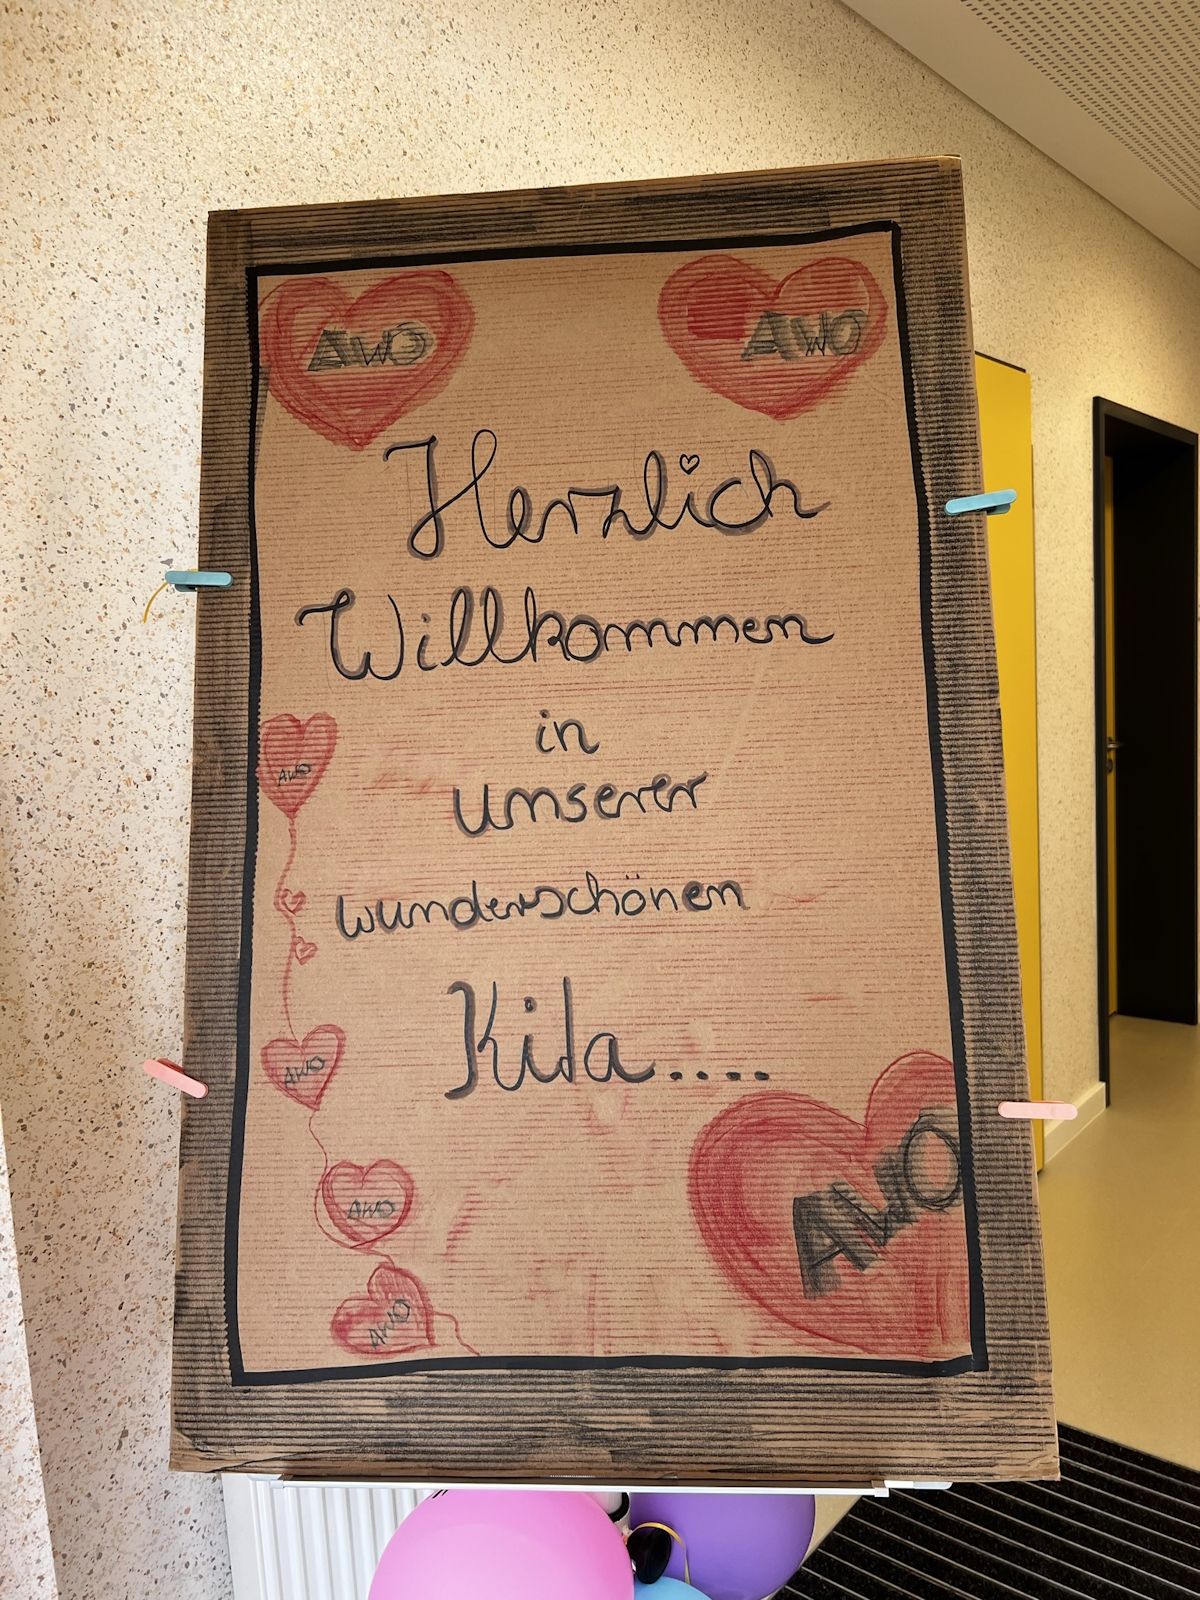 AWO AWO
Herzlich
Willkommen
in
unserer
wunderschönen
Kita....
AWO
AWO
AWO
AWO
AWO